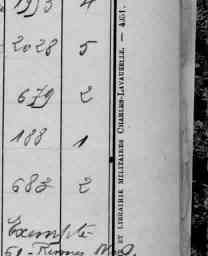 2028 5
679 2
188 1
683 2
Exempté
ET LIBRAIRIE MILITAIRES CHARLES-LAVAUZELLE. —